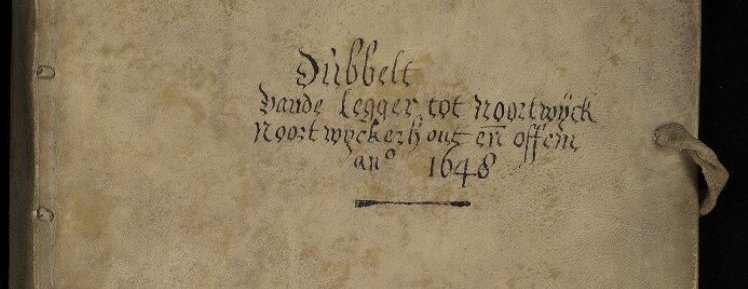 Dubbelt
vande legger tot Noortwÿck
Noortwÿckerhout en̄ offem
anº 1648